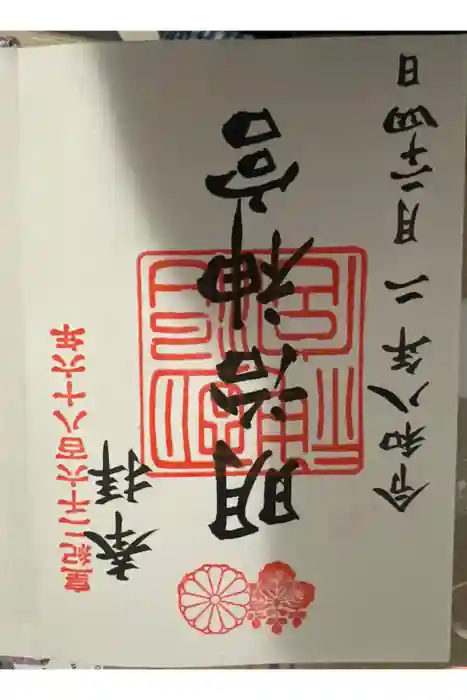 皇紀二千六百八十六年
奉拝
明治神宮
令和八年二月二十四日